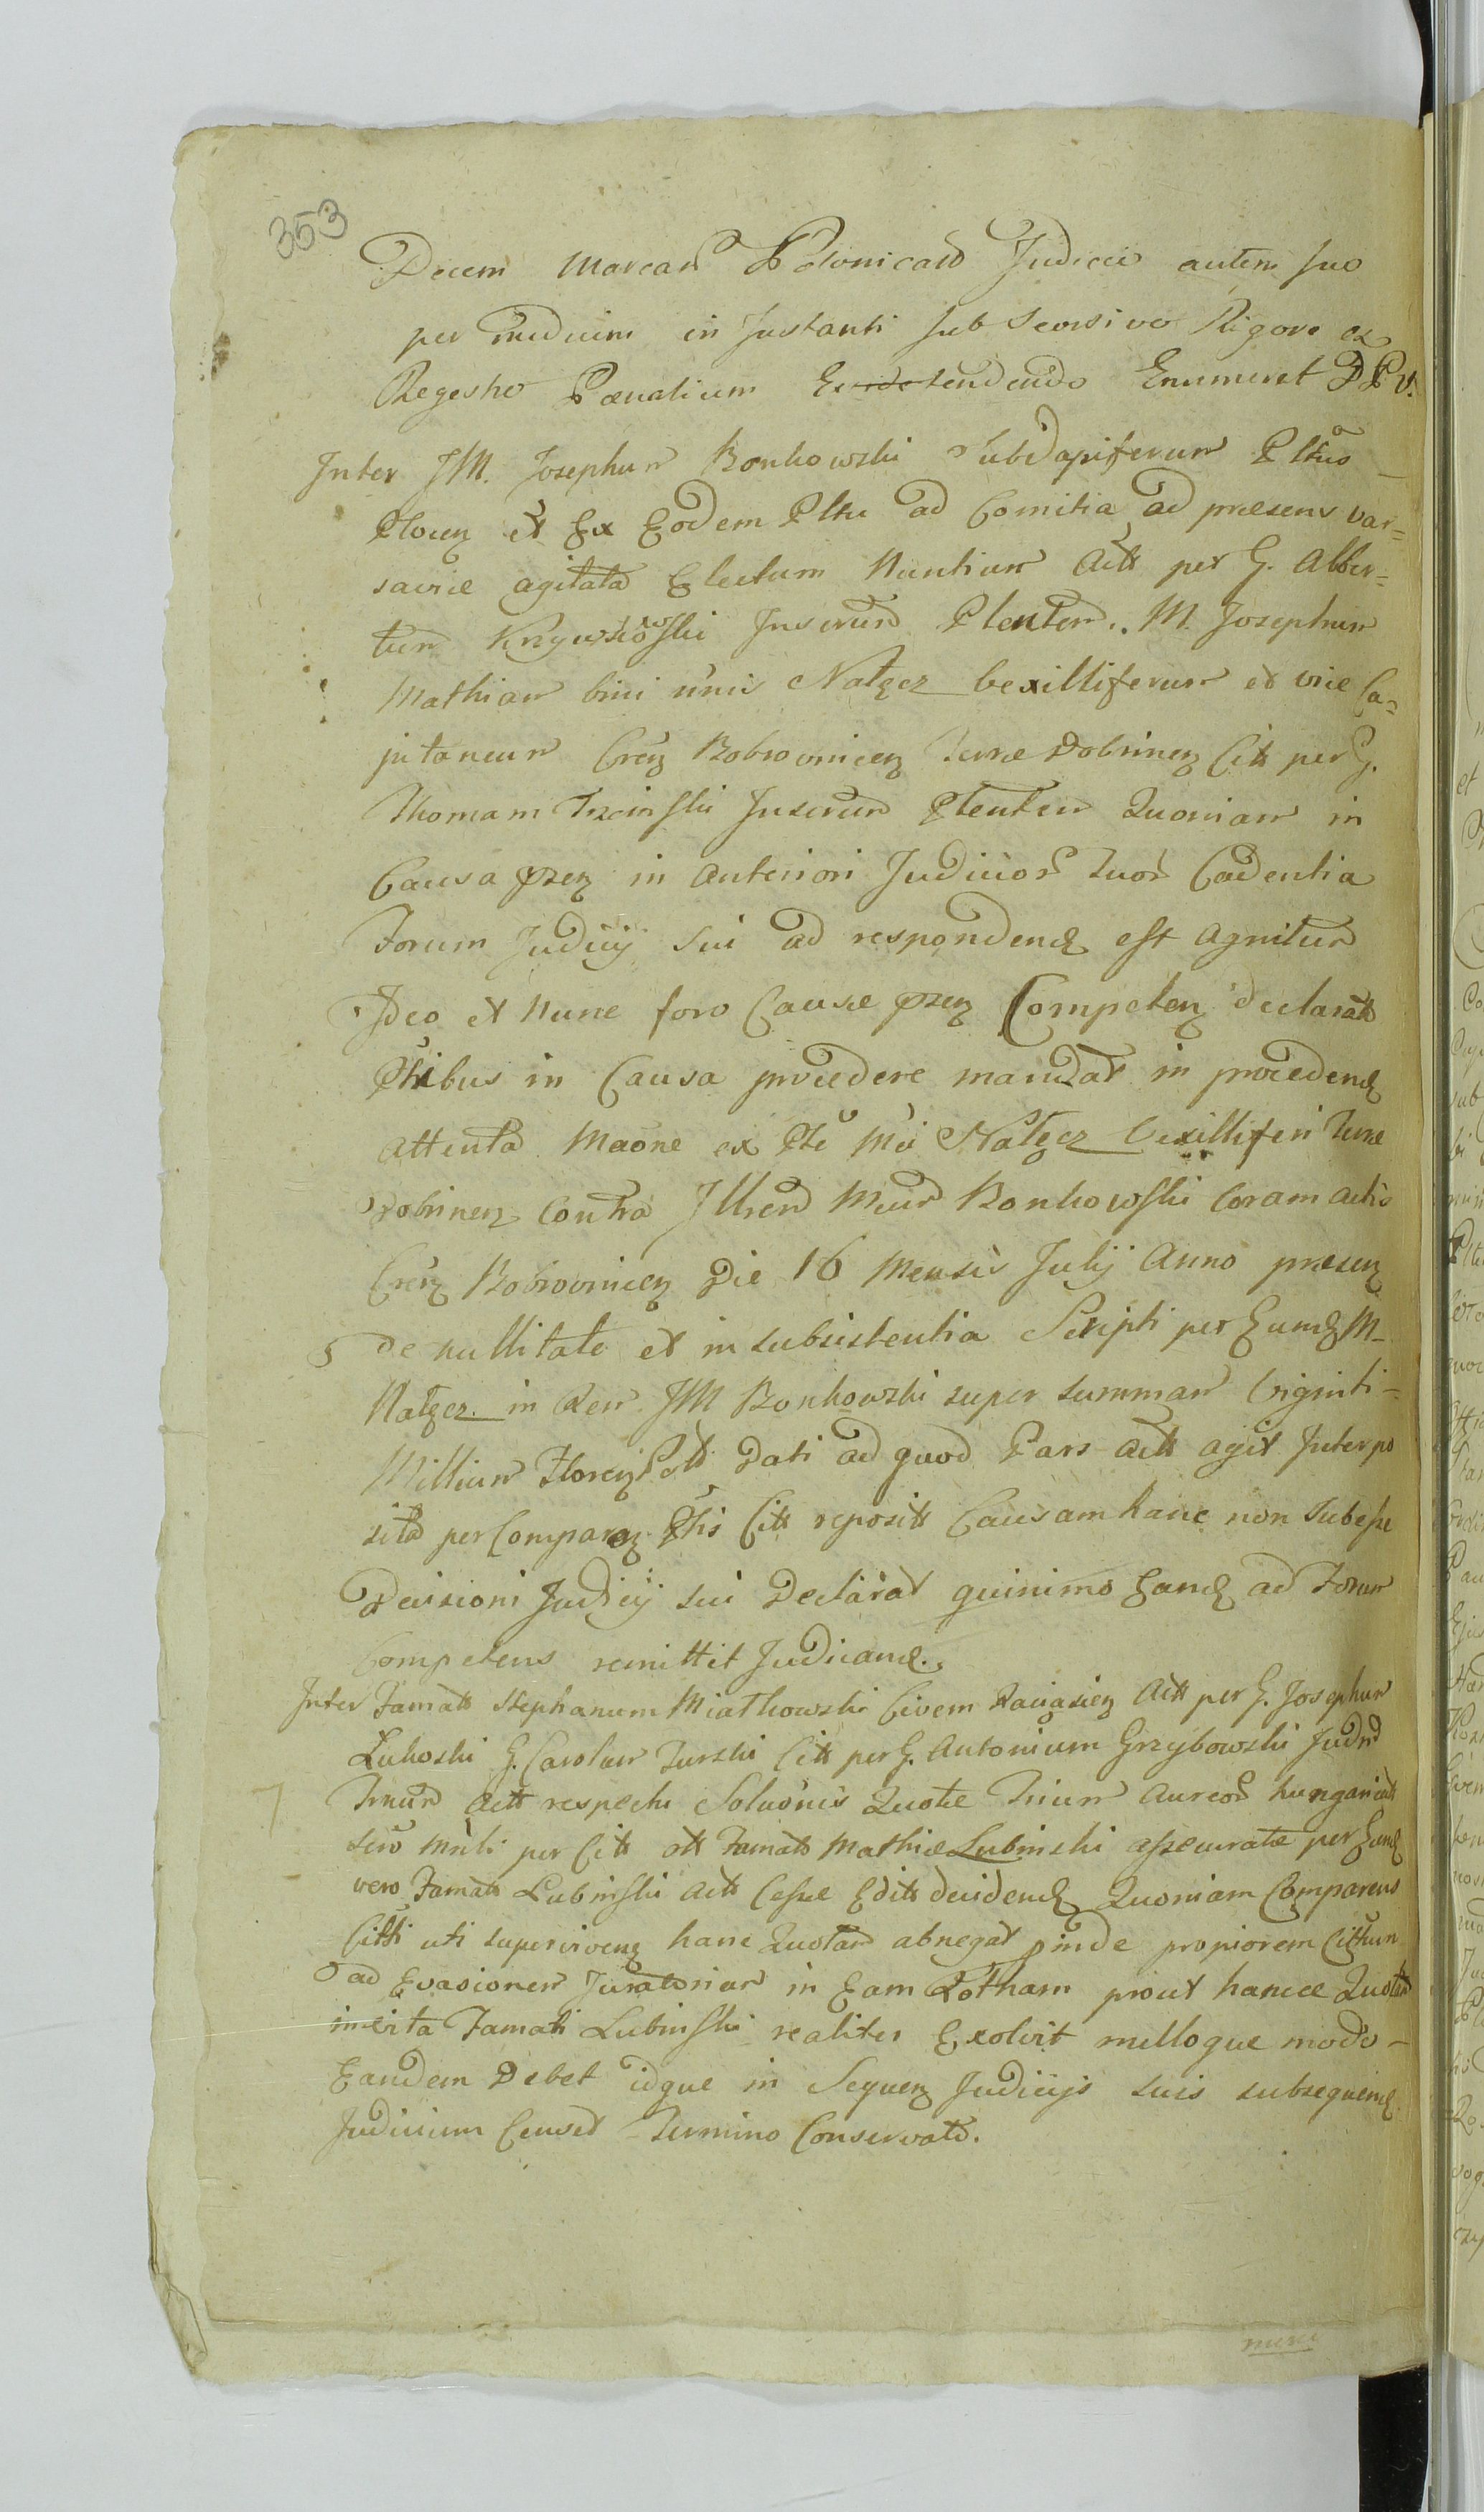 353
Decem Marcar Polonicar Judicii autem suo
per medium in Instanti sub Seorsivo Rigore ex
Regestro Pœnalium Extendendo Enumeret D P V.
Inter JM. Josephum Bonkowski Subdapiferum Pltus
Plocen et Ex Eodem Pltu ad Comitia ad præsens Var=
saviæ agitata Electum Nuntium Actt per G. Alber=
tum Inserum Plentem. M. Josephum
Mathiam bini nnis Nałęcz Vexilliferum et vice Ca=
pitaneum Cren Bobrovnicen Terræ Dobrinen Citt per G.
Thomam Trzcinski Inserum Plentem Quoniam in
Causa præn in anteriori Judicior suor Cadentia
Forum Judicij sui ad respondend est agnitum
Ideo et Nunc foro Causæ præn Competen declarato
Ptibus in Causa procedere mandat in procedend
attenta Maone ex Pte Mci Nałęcz Vexilliferi Terræ
Dobrinen Contra Illrem Mcum Bonkowski Coram actis
Cren Bobrovnicen Die 16 Mensis Julij Anno præsen
de nullitate et insubsistentia Scripti per Eumd M-
Nałęcz in Rem JM Bonkowski super summam Viginti-
Millium Floren Poll Dati ad quod Pars Actt agit Interpo
sita per Comparen Ptis Citt repositt Causam hanc non Subesse
Decisioni Judicij sui Declarat quinimo Eand ad Forum
Competens remittit Judicand.
Inter Famatt Stephanum Miatkowski Civem Raciązien Actt per G. Josephum
Lukoski G. Carolum Turski Citt per G. Antonium Grzybowski Judm
Tmum Actt respectu Soluonis Quotæ Trium Aureor hungaricat
per Citt ott Famato Mathiæ Lubinski assecuratæ per Eund
vero Famatt Lubinski Actt Cessæ Editt decidend Quoniam Comparens
Citti uti superviven hanc Quotam abnegat proinde propiorem Cittum
ad Evasionem Juratoriam in Eam Rotham prout hancce Quotam
invita Famati Lubinski realiter Exolvit nulloque modo-
Eandem Debet idque in Sequen Judicijs suis subsequend
Judicium Censet Termino Conservato.